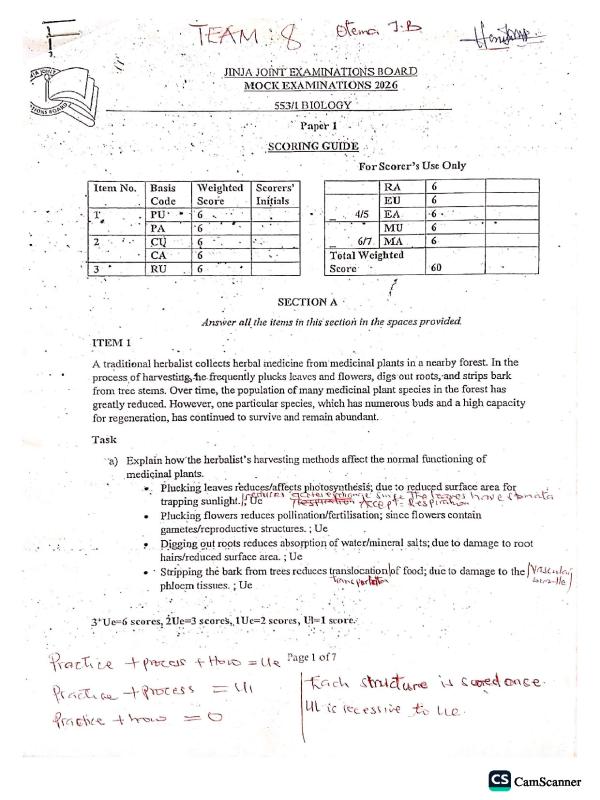 TEAM : 8 Etema J.B
JINJA JOINT EXAMINATIONS BOARD
MOCK EXAMINATIONS 2026
553/1 BIOLOGY
Paper 1
SCORING GUIDE
For Scorer's Use Only
Item No. Basis Code Weighted Score Scorers' Initials
1 PU 6
PA 6
2 CU 6
CA 6
3 RU 6
RA 6
EU 6
4/5 EA 6
MU 6
6/7 MA 6
Total Weighted Score 60
SECTION A
Answer all the items in this section in the spaces provided.
ITEM 1
A traditional herbalist collects herbal medicine from medicinal plants in a nearby forest. In the
process of harvesting, he frequently plucks leaves and flowers, digs out roots, and strips bark
from tree stems. Over time, the population of many medicinal plant species in the forest has
greatly reduced. However, one particular species, which has numerous buds and a high capacity
for regeneration, has continued to survive and remain abundant.
Task
a) Explain how the herbalist's harvesting methods affect the normal functioning of
medicinal plants.
• Plucking leaves reduces/affects photosynthesis; due to reduced surface area for
trapping sunlight.; Ue
reduces gaseous exchange since the leaves have stomata
Accept: Respiration
• Plucking flowers reduces pollination/fertilisation; since flowers contain
gametes/reproductive structures. ; Ue
• Digging out roots reduces absorption of water/mineral salts; due to damage to root
hairs/reduced surface area. ; Ue
• Stripping the bark from trees reduces translocation of food; due to damage to the
transportation
Vascular bundle
phloem tissues. ; Ue
3⁺Ue=6 scores, 2Ue=3 scores, 1Ue=2 scores, Ul=1 score.
Page 1 of 7
Practice + process + How = Ue
Practice + process = Ul
Practice + how = 0
Each structure is scored once.
Ul is recessive to Ue.
CS CamScanner